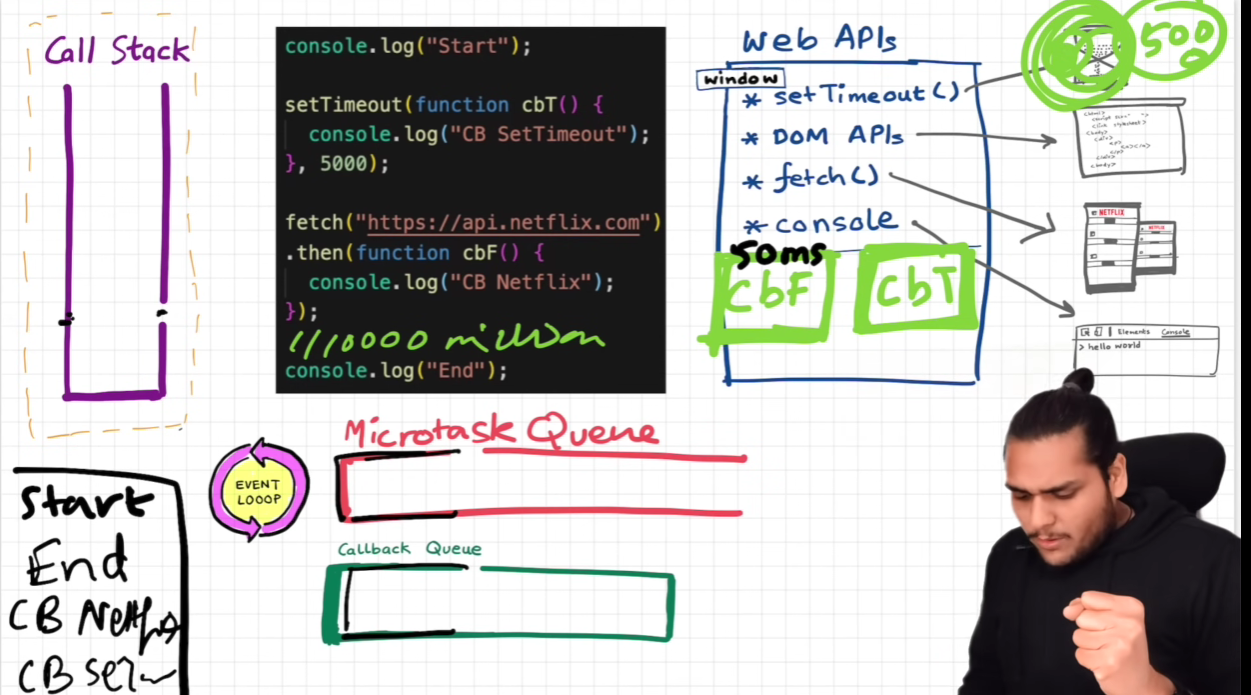 Call Stack
console.log("Start");
setTimeout(function cbT() {
console.log("CB SetTimeout");
}, 5000);
fetch("https://api.netflix.com")
.then(function cbF() {
console.log("CB Netflix");
});
million
console.log("End");
Web APIs
window
* setTimeout()
* DOM APIs
* fetch()
* console
50ms
cbF
cbT
500
NETFLIX
NETFLIX
Elements Console
> hello world
Microtask Queue
EVENT
LOOOP
Callback Queue
Start
End
CB
CB